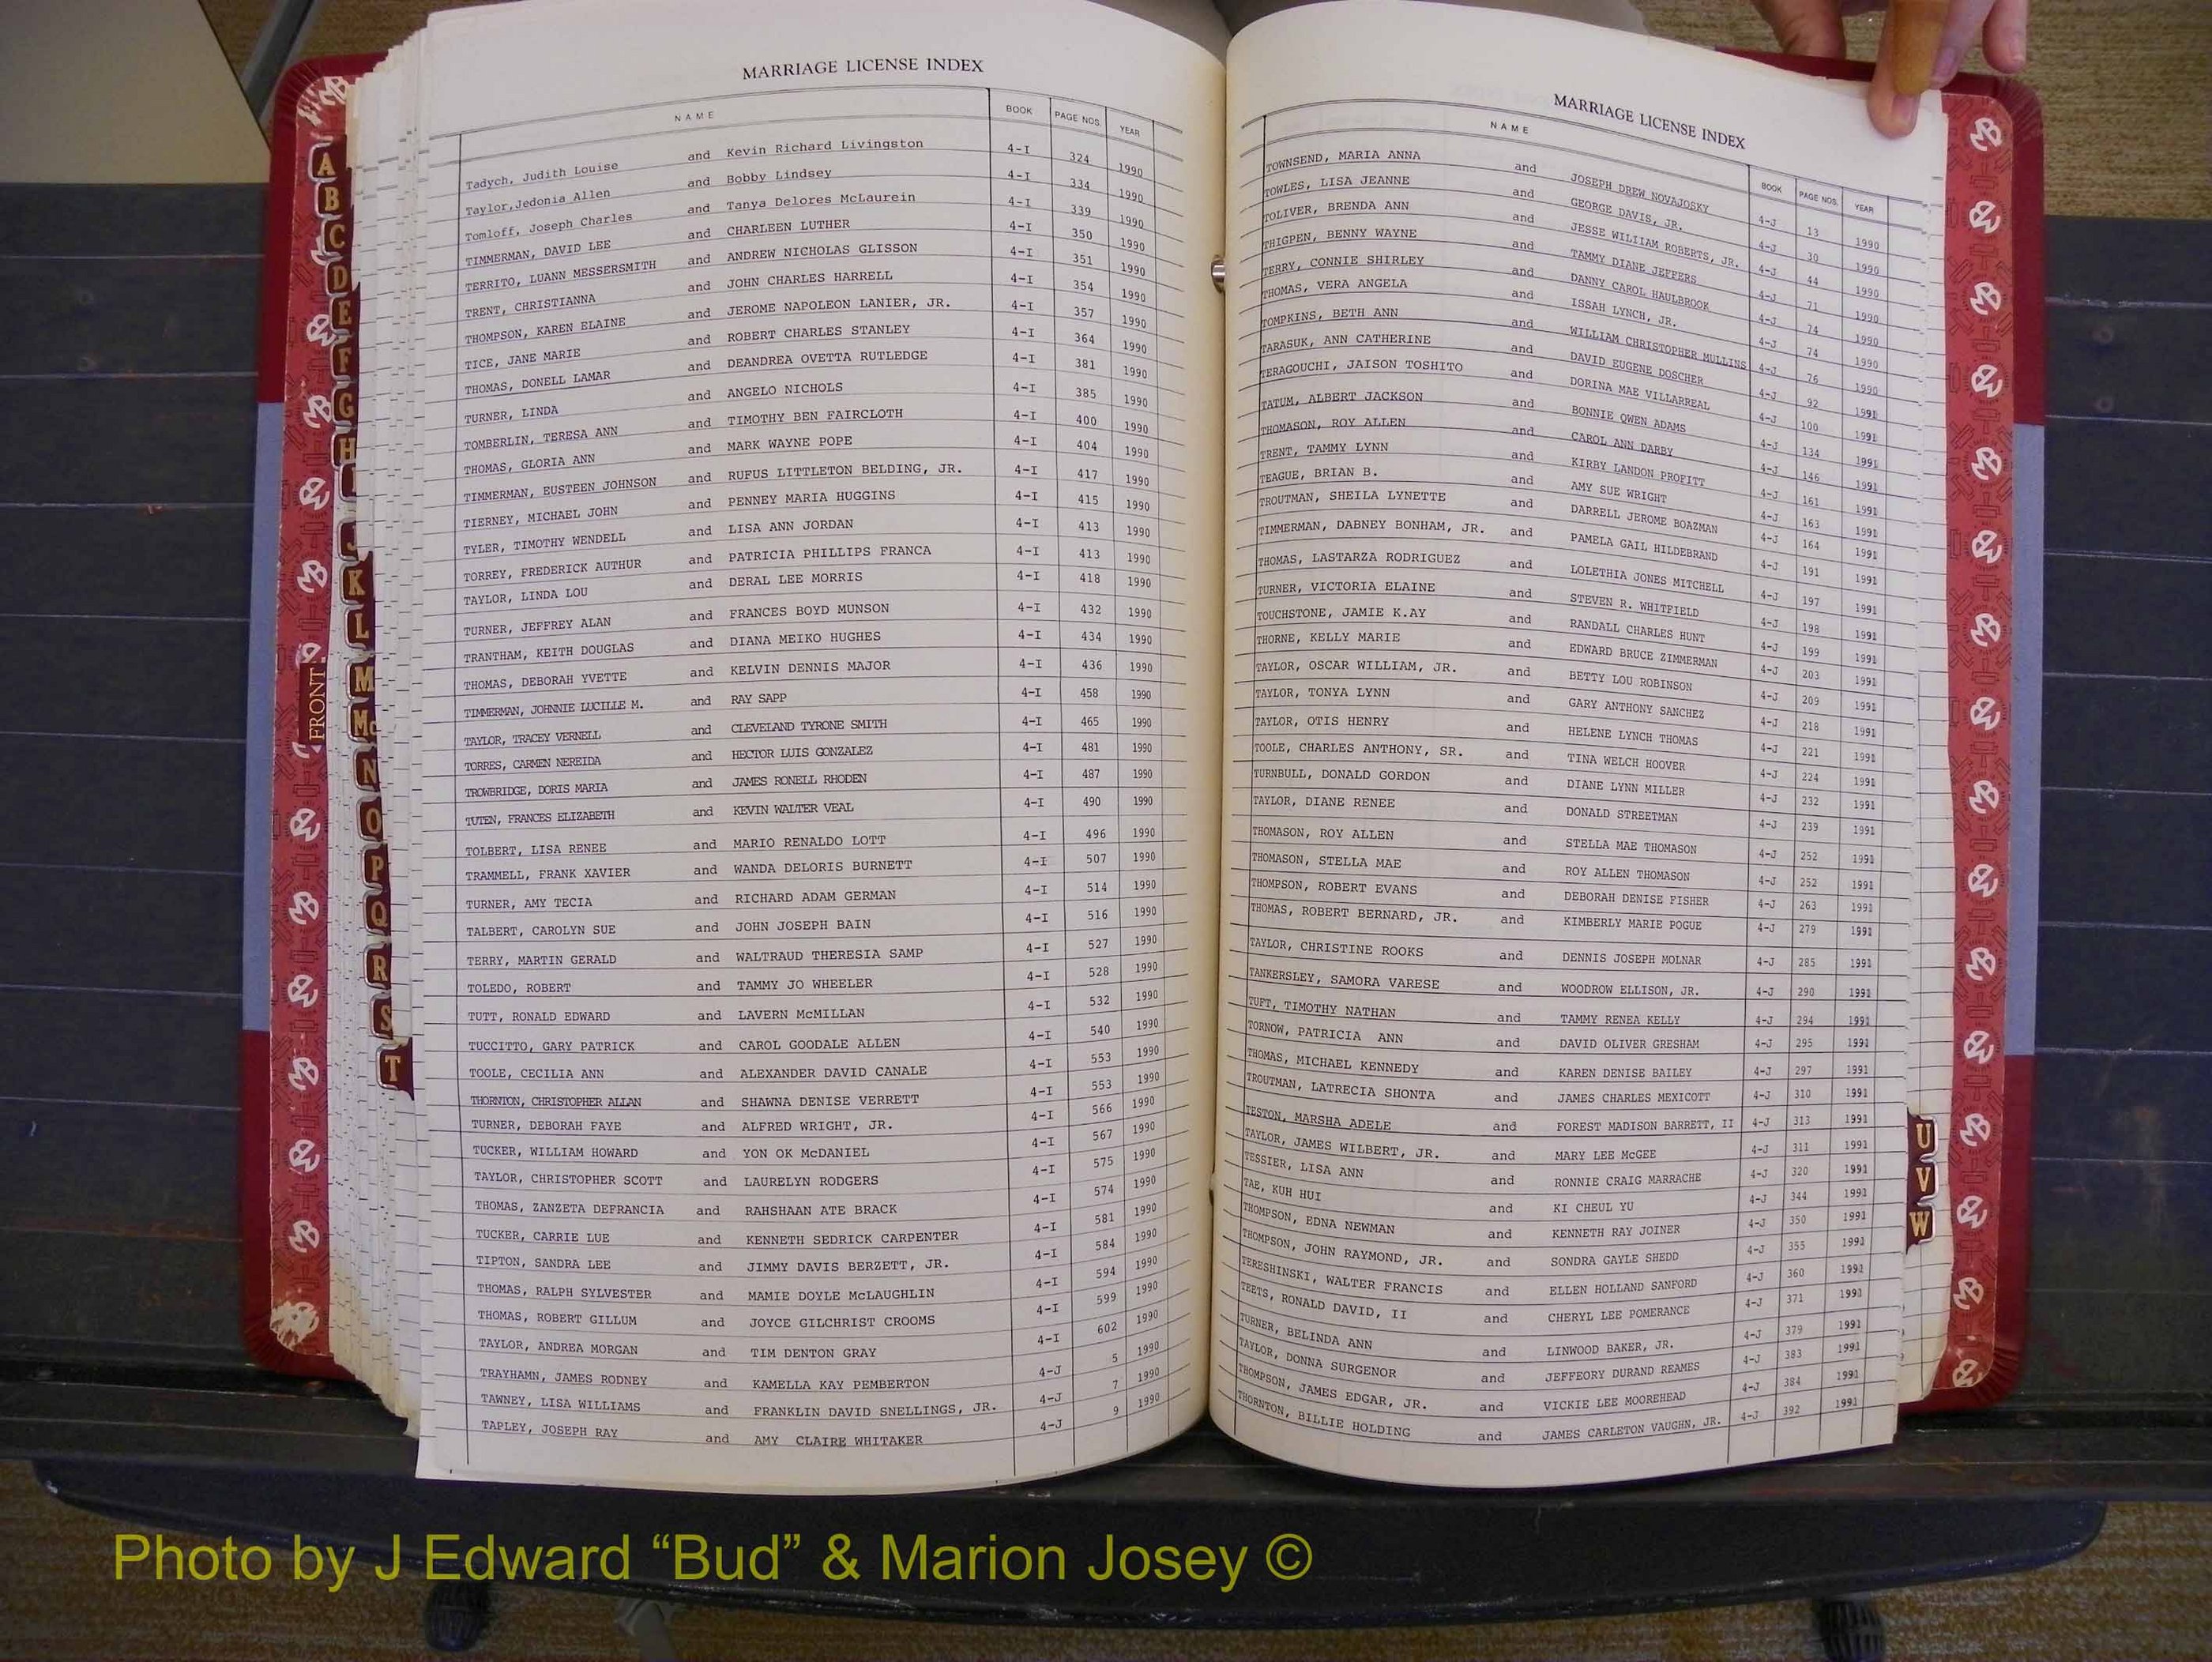 MARRIAGE LICENSE INDEX
NAME BOOK PAGE NOS. YEAR
Tadych, Judith Louise and Kevin Richard Livingston 4-I 324 1990
Taylor,Jedonia Allen and Bobby Lindsey 4-I 334 1990
Tomloff, Joseph Charles and Tanya Delores McLaurein 4-I 339 1990
TIMMERMAN, DAVID LEE and CHARLEEN LUTHER 4-I 350 1990
TERRITO, LUANN MESSERSMITH and ANDREW NICHOLAS GLISSON 4-I 351 1990
TRENT, CHRISTIANNA and JOHN CHARLES HARRELL 4-I 354 1990
THOMPSON, KAREN ELAINE and JEROME NAPOLEON LANIER, JR. 4-I 357 1990
TICE, JANE MARIE and ROBERT CHARLES STANLEY 4-I 364 1990
THOMAS, DONELL LAMAR and DEANDREA OVETTA RUTLEDGE 4-I 381 1990
TURNER, LINDA and ANGELO NICHOLS 4-I 385 1990
TOMBERLIN, TERESA ANN and TIMOTHY BEN FAIRCLOTH 4-I 400 1990
THOMAS, GLORIA ANN and MARK WAYNE POPE 4-I 404 1990
TIMMERMAN, EUSTEEN JOHNSON and RUFUS LITTLETON BELDING, JR. 4-I 417 1990
TIERNEY, MICHAEL JOHN and PENNEY MARIA HUGGINS 4-I 415 1990
TYLER, TIMOTHY WENDELL and LISA ANN JORDAN 4-I 413 1990
TORREY, FREDERICK AUTHUR and PATRICIA PHILLIPS FRANCA 4-I 413 1990
TAYLOR, LINDA LOU and DERAL LEE MORRIS 4-I 418 1990
TURNER, JEFFREY ALAN and FRANCES BOYD MUNSON 4-I 432 1990
TRANTHAM, KEITH DOUGLAS and DIANA MEIKO HUGHES 4-I 434 1990
THOMAS, DEBORAH YVETTE and KELVIN DENNIS MAJOR 4-I 436 1990
TIMMERMAN, JOHNNIE LUCILLE M. and RAY SAPP 4-I 458 1990
TAYLOR, TRACEY VERNELL and CLEVELAND TYRONE SMITH 4-I 465 1990
TORRES, CARMEN NEREIDA and HECTOR LUIS GONZALEZ 4-I 481 1990
TROWBRIDGE, DORIS MARIA and JAMES RONELL RHODEN 4-I 487 1990
TUTEN, FRANCES ELIZABETH and KEVIN WALTER VEAL 4-I 490 1990
TOLBERT, LISA RENEE and MARIO RENALDO LOTT 4-I 496 1990
TRAMMELL, FRANK XAVIER and WANDA DELORIS BURNETT 4-I 507 1990
TURNER, AMY TECIA and RICHARD ADAM GERMAN 4-I 514 1990
TALBERT, CAROLYN SUE and JOHN JOSEPH BAIN 4-I 516 1990
TERRY, MARTIN GERALD and WALTRAUD THERESIA SAMP 4-I 527 1990
TOLEDO, ROBERT and TAMMY JO WHEELER 4-I 528 1990
TUTT, RONALD EDWARD and LAVERN McMILLAN 4-I 532 1990
TUCCITTO, GARY PATRICK and CAROL GOODALE ALLEN 4-I 540 1990
TOOLE, CECILIA ANN and ALEXANDER DAVID CANALE 4-I 553 1990
THORNTON, CHRISTOPHER ALLAN and SHAWNA DENISE VERRETT 4-I 553 1990
TURNER, DEBORAH FAYE and ALFRED WRIGHT, JR. 4-I 566 1990
TUCKER, WILLIAM HOWARD and YON OK McDANIEL 4-I 567 1990
TAYLOR, CHRISTOPHER SCOTT and LAURELYN RODGERS 4-I 575 1990
THOMAS, ZANZETA DEFRANCIA and RAHSHAAN ATE BRACK 4-I 574 1990
TUCKER, CARRIE LUE and KENNETH SEDRICK CARPENTER 4-I 581 1990
TIPTON, SANDRA LEE and JIMMY DAVIS BERZETT, JR. 4-I 584 1990
THOMAS, RALPH SYLVESTER and MAMIE DOYLE McLAUGHLIN 4-I 594 1990
THOMAS, ROBERT GILLUM and JOYCE GILCHRIST CROOMS 4-I 599 1990
TAYLOR, ANDREA MORGAN and TIM DENTON GRAY 4-I 602 1990
TRAYHAMN, JAMES RODNEY and KAMELLA KAY PEMBERTON 4-J 5 1990
TAWNEY, LISA WILLIAMS and FRANKLIN DAVID SNELLINGS, JR. 4-J 7 1990
TAPLEY, JOSEPH RAY and AMY CLAIRE WHITAKER 4-J 9 1990
MARRIAGE LICENSE INDEX
NAME BOOK PAGE NOS. YEAR
TOWNSEND, MARIA ANNA and JOSEPH DREW NOVAJOSKY 4-J 13 1990
TOWLES, LISA JEANNE and GEORGE DAVIS, JR. 4-J 30 1990
TOLIVER, BRENDA ANN and JESSE WILIIAM ROBERTS, JR. 4-J 44 1990
THIGPEN, BENNY WAYNE and TAMMY DIANE JEFFERS 4-J 71 1990
TERRY, CONNIE SHIRLEY and DANNY CAROL HAULBROOK 4-J 74 1990
THOMAS, VERA ANGELA and ISSAH LYNCH, JR. 4-J 74 1990
TOMPKINS, BETH ANN and WILLIAM CHRISTOPHER MULLINS 4-J 76 1990
TARASUK, ANN CATHERINE and DAVID EUGENE DOSCHER 4-J 92 1991
TERAGOUCHI, JAISON TOSHITO and DORINA MAE VILLARREAL 4-J 100 1991
TATUM, ALBERT JACKSON and BONNIE QWEN ADAMS 4-J 134 1991
THOMASON, ROY ALLEN and CAROL ANN DARBY 4-J 146 1991
TRENT, TAMMY LYNN and KIRBY LANDON PROFITT 4-J 161 1991
TEAGUE, BRIAN B. and AMY SUE WRIGHT 4-J 163 1991
TROUTMAN, SHEILA LYNETTE and DARRELL JEROME BOAZMAN 4-J 164 1991
TIMMERMAN, DABNEY BONHAM, JR. and PAMELA GAIL HILDEBRAND 4-J 191 1991
THOMAS, LASTARZA RODRIGUEZ and LOLETHIA JONES MITCHELL 4-J 197 1991
TURNER, VICTORIA ELAINE and STEVEN R. WHITFIELD 4-J 198 1991
TOUCHSTONE, JAMIE K.AY and RANDALL CHARLES HUNT 4-J 199 1991
THORNE, KELLY MARIE and EDWARD BRUCE ZIMMERMAN 4-J 203 1991
TAYLOR, OSCAR WILLIAM, JR. and BETTY LOU ROBINSON 4-J 209 1991
TAYLOR, TONYA LYNN and GARY ANTHONY SANCHEZ 4-J 218 1991
TAYLOR, OTIS HENRY and HELENE LYNCH THOMAS 4-J 221 1991
TOOLE, CHARLES ANTHONY, SR. and TINA WELCH HOOVER 4-J 224 1991
TURNBULL, DONALD GORDON and DIANE LYNN MILLER 4-J 232 1991
TAYLOR, DIANE RENEE and DONALD STREETMAN 4-J 239 1991
THOMASON, ROY ALLEN and STELLA MAE THOMASON 4-J 252 1991
THOMASON, STELLA MAE and ROY ALLEN THOMASON 4-J 252 1991
THOMPSON, ROBERT EVANS and DEBORAH DENISE FISHER 4-J 263 1991
THOMAS, ROBERT BERNARD, JR. and KIMBERLY MARIE POGUE 4-J 279 1991
TAYLOR, CHRISTINE ROOKS and DENNIS JOSEPH MOLNAR 4-J 285 1991
TANKERSLEY, SAMORA VARESE and WOODROW ELLISON, JR. 4-J 290 1991
TUFT, TIMOTHY NATHAN and TAMMY RENEA KELLY 4-J 294 1991
TORNOW, PATRICIA ANN and DAVID OLIVER GRESHAM 4-J 295 1991
THOMAS, MICHAEL KENNEDY and KAREN DENISE BAILEY 4-J 297 1991
TROUTMAN, LATRECIA SHONTA and JAMES CHARLES MEXICOTT 4-J 310 1991
TESTON, MARSHA ADELE and FOREST MADISON BARRETT, II 4-J 313 1991
TAYLOR, JAMES WILBERT, JR. and MARY LEE McGEE 4-J 311 1991
TESSIER, LISA ANN and RONNIE CRAIG MARRACHE 4-J 320 1991
TAE, KUH HUI and KI CHEUL YU 4-J 344 1991
THOMPSON, EDNA NEWMAN and KENNETH RAY JOINER 4-J 350 1991
THOMPSON, JOHN RAYMOND, JR. and SONDRA GAYLE SHEDD 4-J 355 1991
TERESHINSKI, WALTER FRANCIS and ELLEN HOLLAND SANFORD 4-J 360 1991
TEETS, RONALD DAVID, II and CHERYL LEE POMERANCE 4-J 371 1991
TURNER, BELINDA ANN and LINWOOD BAKER, JR. 4-J 379 1991
TAYLOR, DONNA SURGENOR and JEFFEORY DURAND REAMES 4-J 383 1991
THOMPSON, JAMES EDGAR, JR. and VICKIE LEE MOOREHEAD 4-J 384 1991
THORNTON, BILLIE HOLDING and JAMES CARLETON VAUGHN, JR. 4-J 392 1991
A
B
C
D
E
F
G
H
J
K
L
M
Mc
N
O
P
Q
R
S
T
FRONT
U
V
W
Photo by J Edward “Bud” & Marion Josey ©